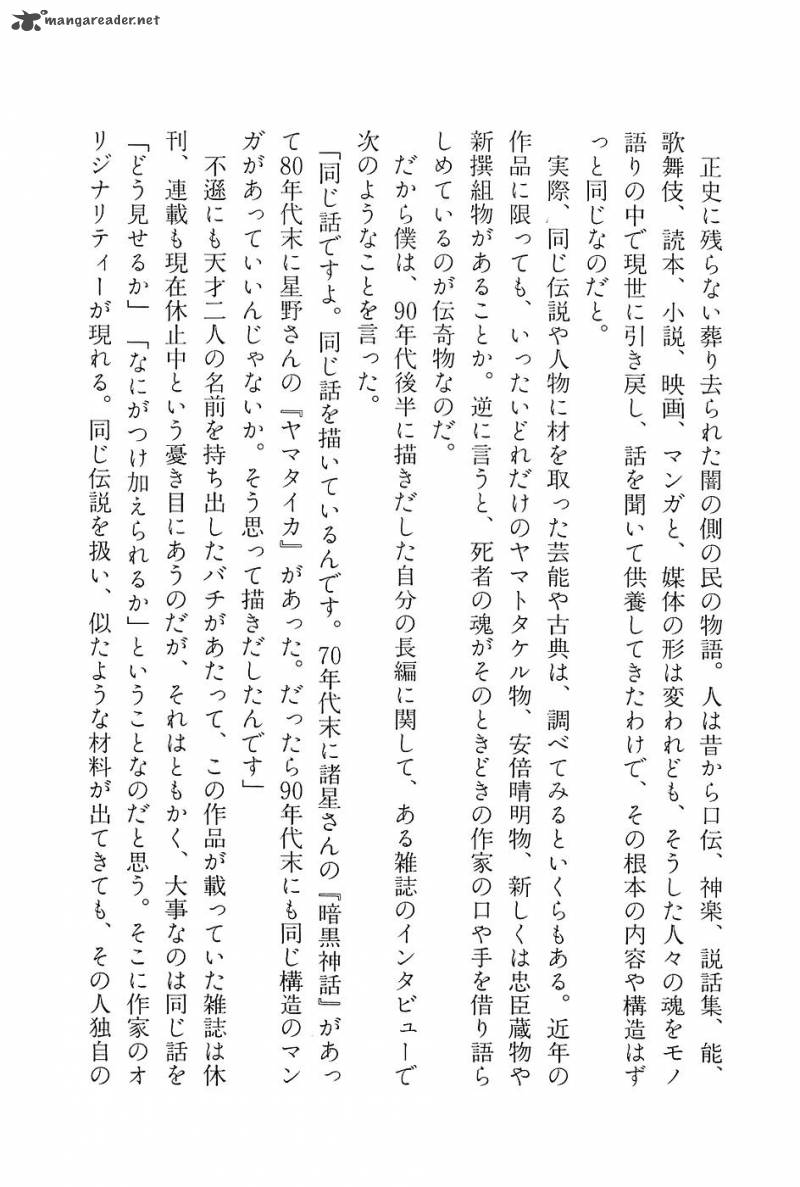 mangareader.net
正史に残らない葬り去られた闇の側の民の物語。人は昔から口伝、神楽、説話集、能、
歌舞伎、読本、小説、映画、マンガと、媒体の形は変われども、そうした人々の魂をモノ
語りの中で現世に引き戻し、話を聞いて供養してきたわけで、その根本の内容や構造はず
っと同じなのだと。
実際、同じ伝説や人物に材を取った芸能や古典は、調べてみるといくらもある。近年の
作品に限っても、いったいどれだけのヤマトタケル物、安倍晴明物、新しくは忠臣蔵物や
新撰組物があることか。逆に言うと、死者の魂がそのときどきの作家の口や手を借り語ら
しめているのが伝奇物なのだ。
だから僕は、90年代後半に描きだした自分の長編に関して、ある雑誌のインタビューで
次のようなことを言った。
「同じ話ですよ。同じ話を描いているんです。70年代末に諸星さんの『暗黒神話』があっ
て80年代末に星野さんの『ヤマタイカ』があった。だったら90年代末にも同じ構造のマン
ガがあっていいんじゃないか。そう思って描きだしたんです」
不遜にも天才二人の名前を持ち出したバチがあたって、この作品が載っていた雑誌は休
刊、連載も現在休止中という憂き目にあうのだが、それはともかく、大事なのは同じ話を
「どう見せるか」「なにがつけ加えられるか」ということなのだと思う。そこに作家のオ
リジナリティーが現れる。同じ伝説を扱い、似たような材料が出てきても、その人独自の